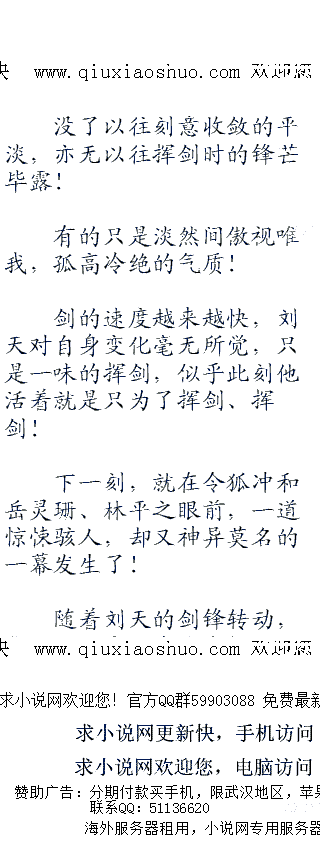 快 www.qiuxiaoshuo.com 欢迎您
没了以往刻意收敛的平
淡，亦无以往挥剑时的锋芒
毕露！
有的只是淡然间傲视唯
我，孤高冷绝的气质！
剑的速度越来越快，刘
天对自身变化毫无所觉，只
是一味的挥剑，似乎此刻他
活着就是只为了挥剑、挥
剑！
下一刻，就在令狐冲和
岳灵珊、林平之眼前，一道
惊悚骇人，却又神异莫名的
一幕发生了！
随着刘天的剑锋转动，
快 www.qiuxiaoshuo.com 欢迎您
求小说网欢迎您！官方QQ群59903088 免费最新
求小说网更新快，手机访问
求小说网欢迎您，电脑访问
赞助广告：分期付款买手机，限武汉地区，苹果
联系QQ：51136620
海外服务器租用，小说网专用服务器